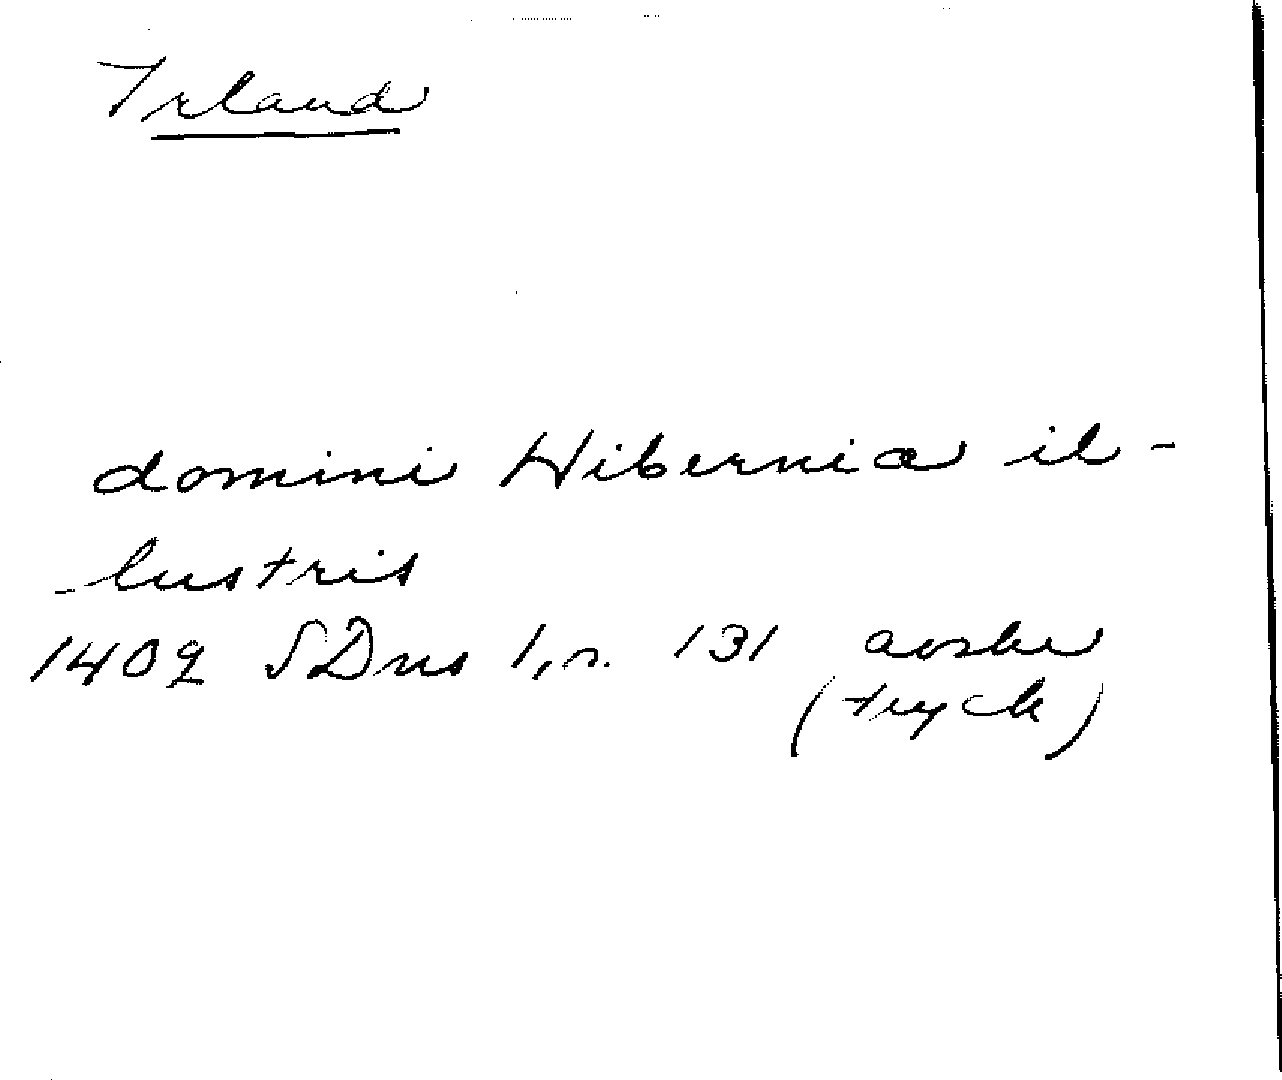 Irland
domini Hiberniæ il-
-lustris
1402 SDns 1, s. 131 avskr
(tryck)